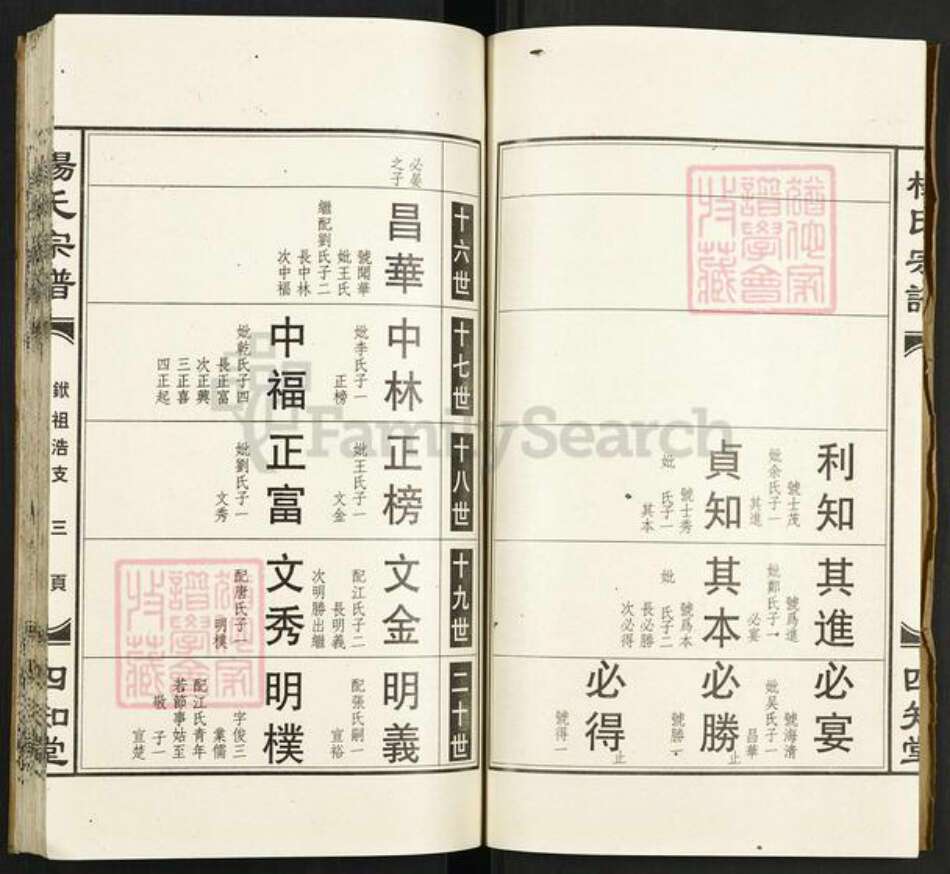 楊氏宗譜
四知堂
利知
號士茂
妣余氏子一
其進
貞知
號士秀
妣 氏子一
其本
其進
號爲進
妣鄭氏子一
必宴
其本
號爲本
妣 氏子二
長必勝
次必得
必宴
號海清
妣吴氏子一
昌華
必勝
止
號勝一
必得
止
號得一
十六世
十七世
十八世
十九世
二十世
必晏
之子
昌華
號聞華
妣王氏
繼配劉氏子二
長中林
次中福
中林
妣李氏子一
正榜
中福
妣乾氏子四
長正富
次正興
三正喜
四正起
正榜
妣王氏子一
文金
正富
妣劉氏子一
文秀
文金
配江氏子二
長明義
次明勝出繼
文秀
配唐氏子一
明樸
明義
配張氏嗣一
宣裕
明樸
字俊三
業儒
配江氏青年
若節事姑至
敬 子一
宣楚
楊氏宗譜
猷祖浩支
三頁
四知堂
FamilySearch